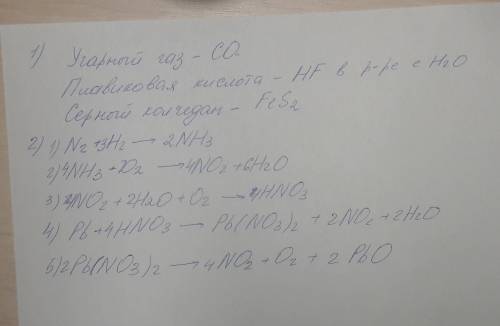 1) Угарный газ - CO
Плавиковая кислота - HF в р-ре с H2O
Серный колчедан - FeS2
2) 1) N2 + 3H2 → 2NH3
2) 4NH3 + 7O2 → 4NO2 + 6H2O
3) 4NO2 + 2H2O + O2 → 4HNO3
4) Pb + 4HNO3 → Pb(NO3)2 + 2NO2 + 2H2O
5) 2Pb(NO3)2 → 4NO2 + O2 + 2PbO